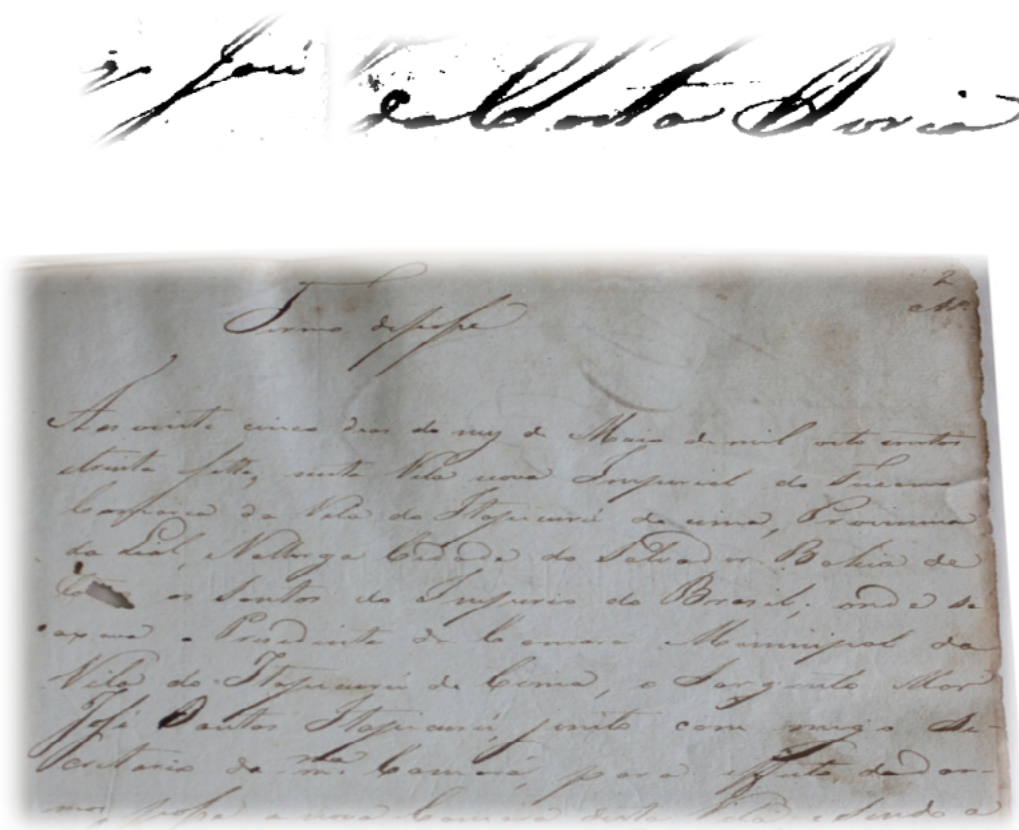 José da Costa Doria
2
Termo de posse
Aos vinte cinco dias do mez de Maio de mil oito centos
etrinta Sette, nesta Villa nova Imperial do Tucano
Comarca da Villa do Itapicurú de cima, Provincia
da Leal, Cidade do Salvador Bahia de
os Santos do Imperio do Brasil; onde se
o Prezidente da Camara Municipal da
Villa do Itapicurú de Cima, o Sargento Mor
José Dantas Itapicurú, junto com migo Se-
cretario da m.ma Camara, para efeito de dar-
mos posse a nova Camara desta Villa e sendo a